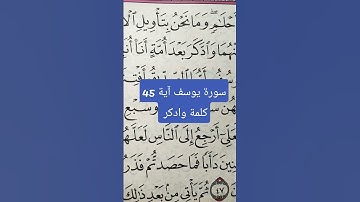 أَحْلَٰمٍ ۖ وَمَا نَحْنُ بِتَأْوِيلِ ٱلْأَ
مِنْهُمَا وَٱدَّكَرَ بَعْدَ أُمَّةٍ أَنَا۠ أُنَ
سورة يوسف آية 45
كلمة وادكر
وَسَبْعِ
لَّعَلِّىٓ أَرْجِعُ إِلَى ٱلنَّاسِ لَعَلَّهُ
سِنِينَ دَأَبًا فَمَا حَصَدتُّمْ فَذَرُ
٤٧ ثُمَّ يَأْتِى مِنۢ بَعْدِ ذَٰلِكَ